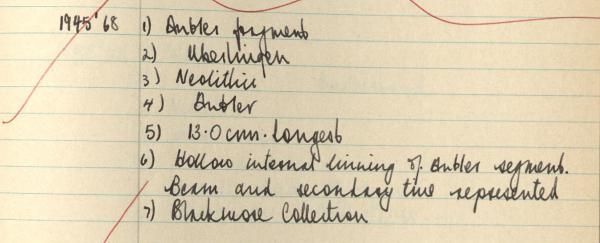 1945'68 1) Antler fragment
2) Uberlingen
3) Neolithic
4) Antler
5) 13.0 cm. longest
6) Hollow internal linning of Antler segment.
Beam and secondary tine represented
7) Blackmore Collection